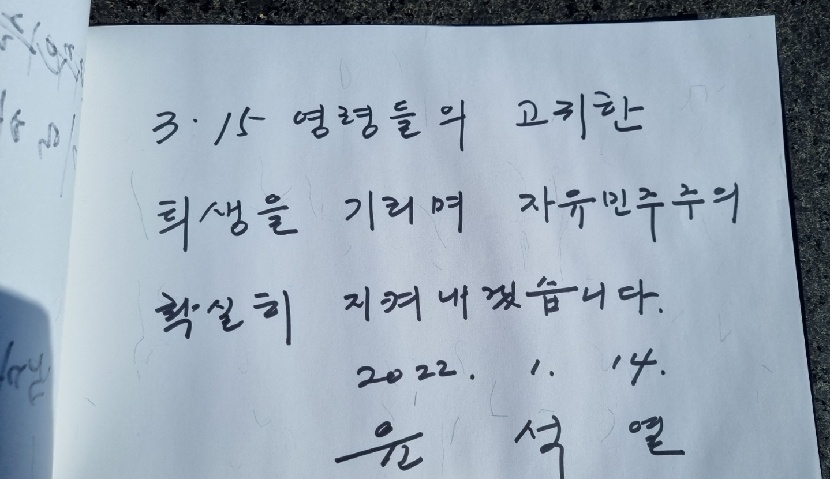 3·15 영령들의 고귀한
희생을 기리며 자유민주주의
확실히 지켜내겠습니다.
2022. 1. 14.
윤 석 열